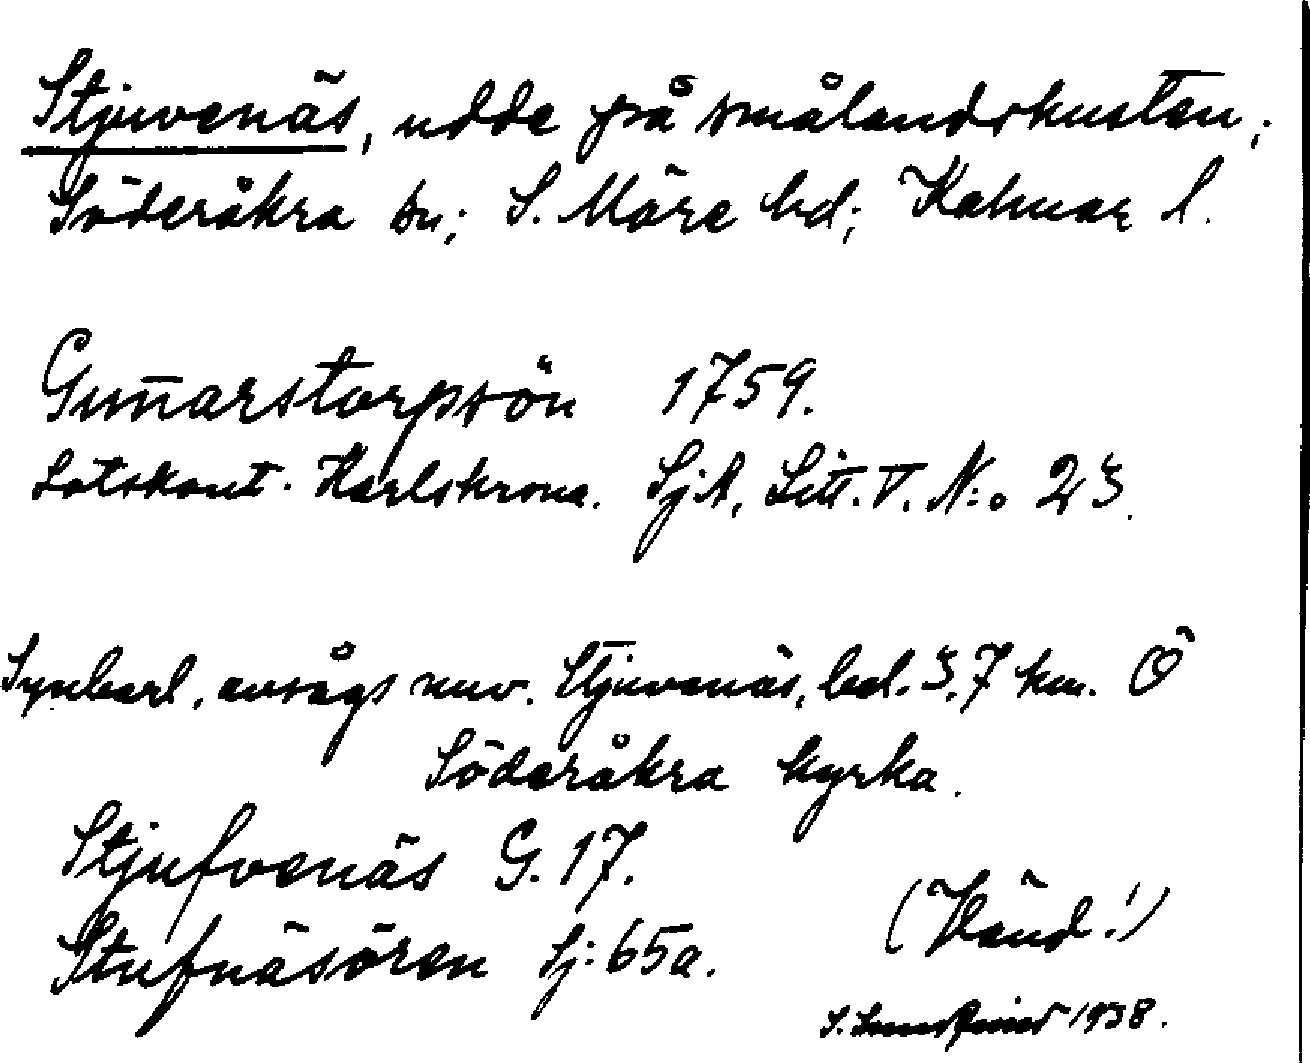 Stjuvenäs, udde på smålandskusten;
Söderåkra sn; S. Möre hd; Kalmar l.
Gun̄arstorpsön 1759.
Lotskont. Karlskrona. SjA, Litt. V. N:o 23.
Synbarl. avsågs nuv. Stjuvenäs, bel. 3,7 km. Ö
Söderåkra kyrka.
Stjufvenäs G. 17.
Stufnäsören Sj: 65a.
(Vänd!)
1938.